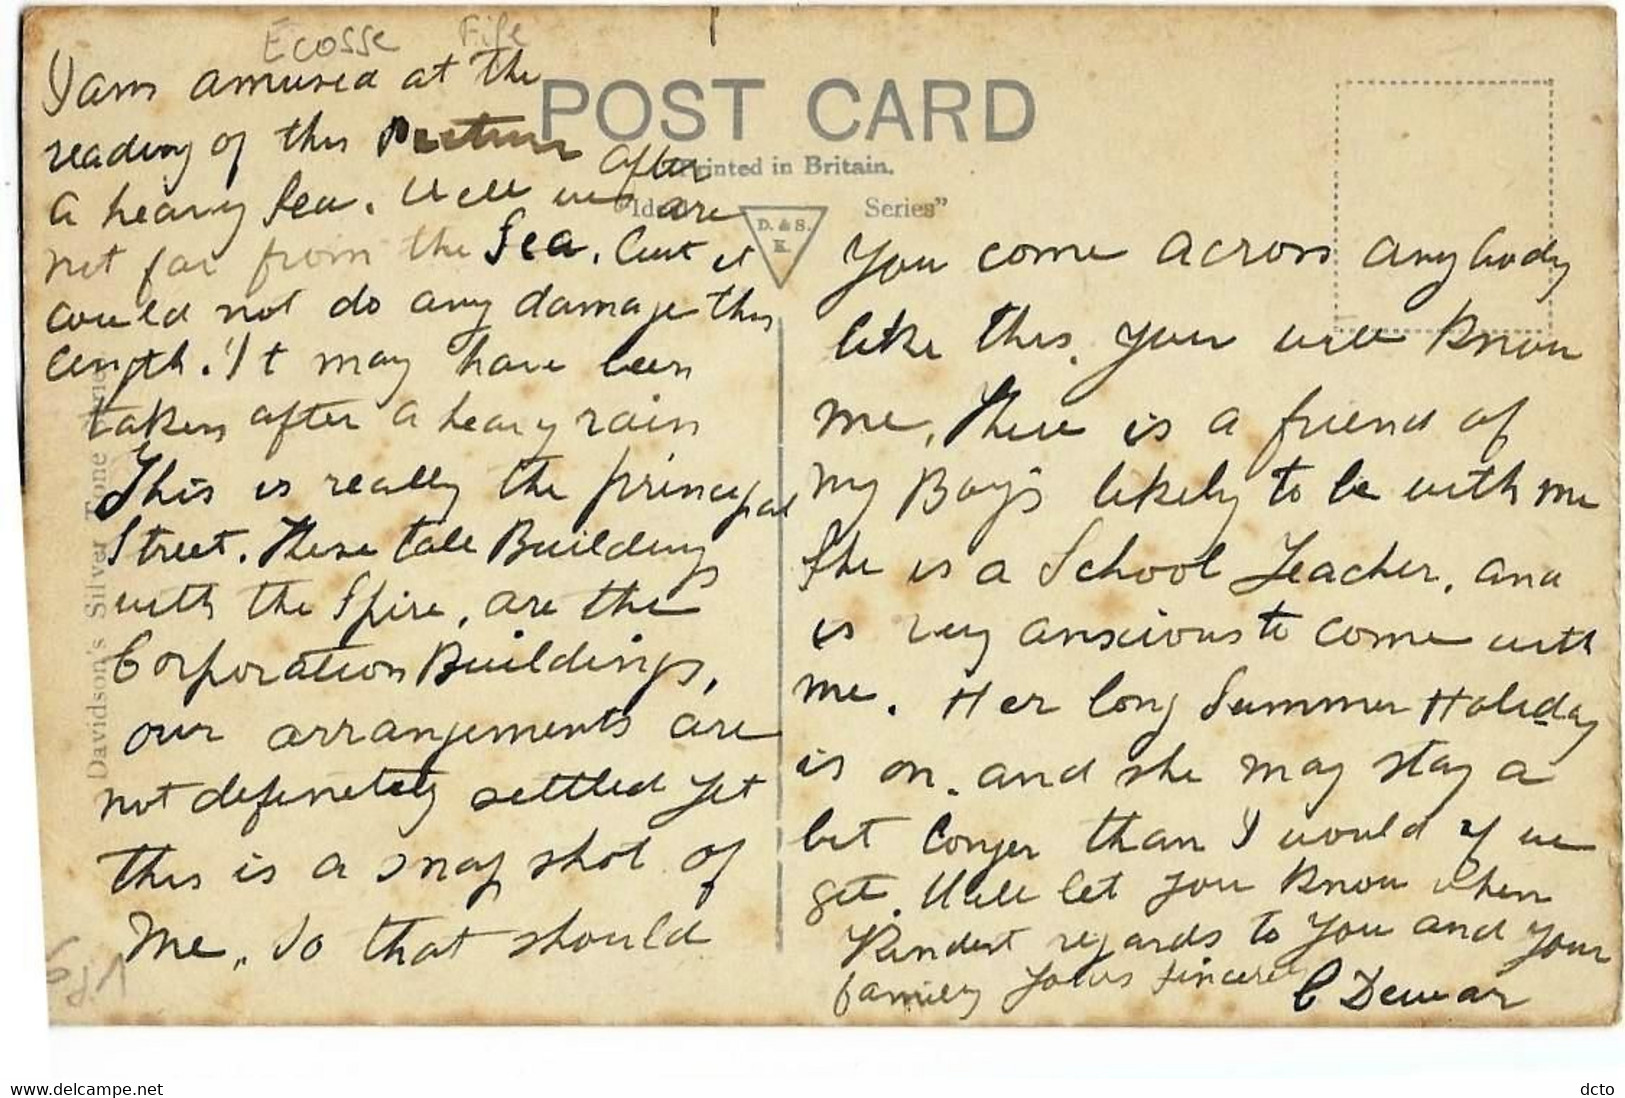 Écosse Fife
I am amused at the
reading of this Picture after
a heavy Sea. Well we are
not far from the Sea. but it
could not do any damage this
length. It may have been
taken after a heavy rain
This is really the principal
Street. These tall Buildings
with the Spire, are the
Corporation Buildings,
our arrangements are
not definetely settled yet
this is a snap shot of
Me,, so that should
POST CARD
Printed in Britain.
Series"
D. & S.
K.
Davidson's Silver Tone
you come across anybody
like this. you will Know
me. There is a friend of
my Boy's likely to be with me
She is a School Teacher, and
is very anxious to come with
me. Her long Summer Holiday
is on. and she may stay a
bit longer than I would if we
get. Well let you Know when
Kindest regards to you and your
family yours sincere
C Dewar
www.delcampe.net
dcto